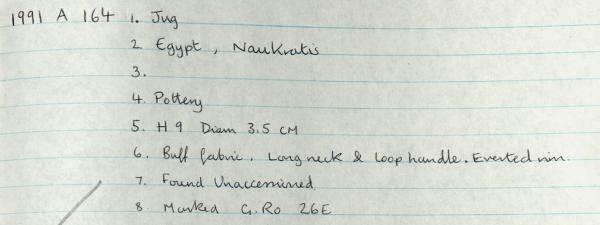 1991 A 164 1. Jug
2 Egypt, Naukratis
3.
4. Pottery
5. H 9 Diam 3.5 CM
6. Buff fabric. Long neck & loop handle. Everted rim.
7. Found Unaccessioned.
8 Marked G.Ro 26E